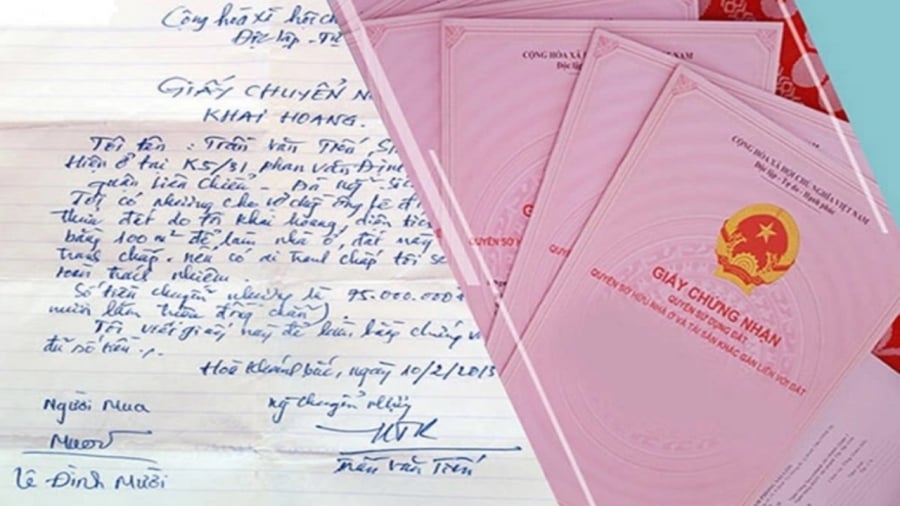 Cộng hòa xã hội ch
Độc lập - Tự
GIẤY CHUYỂN N
KHAI HOANG.
Tôi tên : Trần Văn Tiến, Si
Hiện ở tại K5/31, Phan Văn Định
quận Liên Chiểu - Đà nẵng
Tôi có nhường cho vợ chồng ông Lê Đ
thửa đất do tôi khai hoang, diện tích
bằng 100m² để làm nhà ở, đất này
tranh chấp. nếu có ai tranh chấp tôi
toàn trách nhiệm.
Số tiền chuyển nhượng là 95.000.000
mươi lăm triệu đồng chẵn)
Tôi viết giấy này để làm bằng chứng
đủ số tiền ./.
Hoà Khánh bắc, ngày 10/2/2013
Người Mua
ng chuyển nhượng
Mười
Trần Văn Tiến
Lê Đình Mười
CỘNG HÒA XÃ
Độc lập
NAM
QUYỀN SỞ H
CỘNG HÒA XÃ HỘI CHỦ NGHĨA VIỆT NAM
Độc lập - Tự do - Hạnh phúc
GIẤY CHỨNG NHẬN
QUYỀN SỬ DỤNG ĐẤT
QUYỀN SỞ HỮU NHÀ Ở VÀ TÀI SẢN KHÁC GẮN LIỀN VỚI ĐẤT